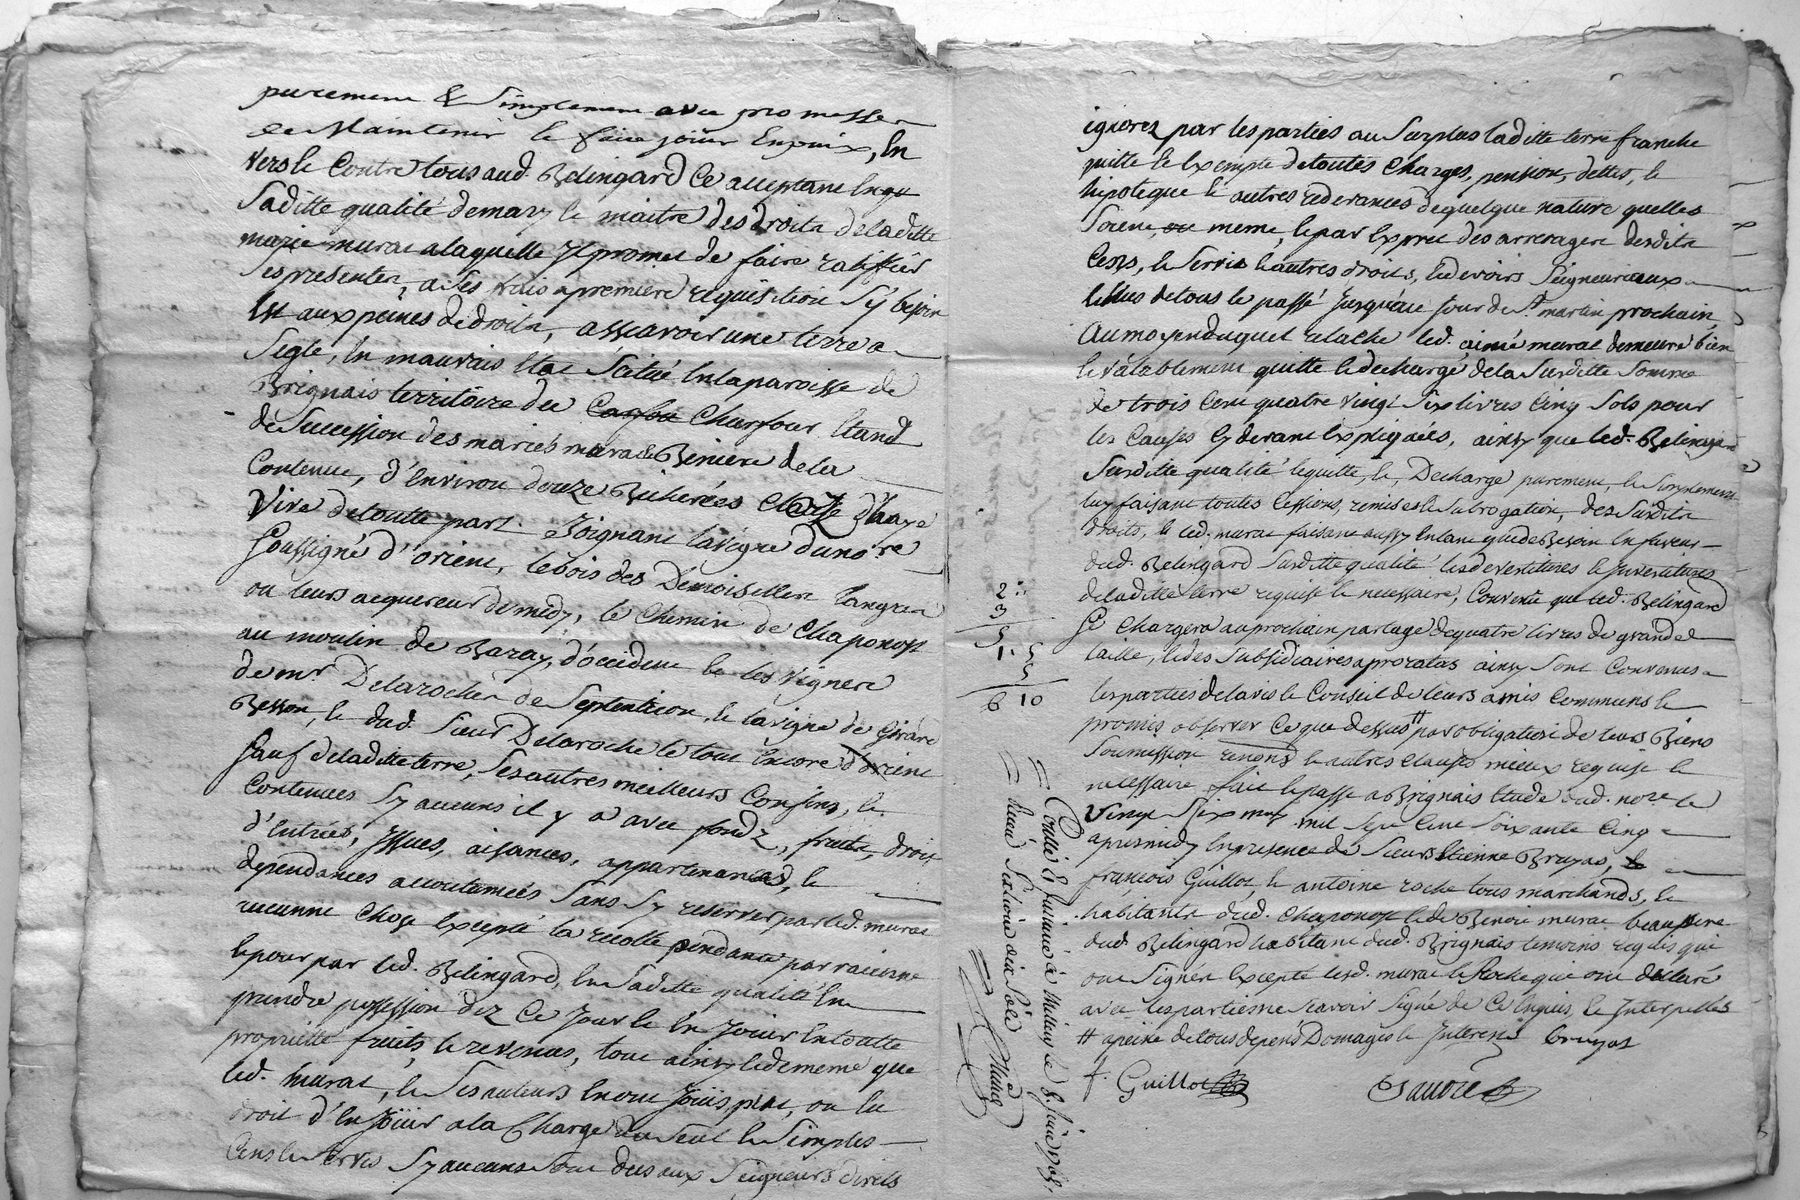 purement & Simplement avec promesse
de Maintenir le faire jouir En paix, En
vers le Contre tous aud. Belingard Ce acceptant En
Saditte qualité de mary le maitre des droits de laditte
marie murat a laquelle Il promet de faire ratiffier
Ses presentes, a Ses frais a premiere requisition Sÿ besoin
Est aux peines de droits, assavoir une terre a
Segle, En mauvais Etat Scitué En la paroisse de
Brignais territoire du Charfour Etand
de Succession des mariés murat Beniere de la
Contenue, d'Environ douze Bicherées Close d'haye
Vive de toutte part. Joignant la vigne du no.re
Soussigné d'orient, le bois des Demoiselles Langres
ou leurs acquereurs de midy, le Chemin de Chaponost
au moulin de Baray, d'occident le les vignes
de m.r Delaroche de Septentrion, le la vigne de Girard
Besson, le dud. Sieur Delaroche le tout Encore d'orient
Sauf de laditte terre, Ses autres meilleurs Confins, le
Contenues Sy aucuns il y a avec fondz, fruits, droits
d'Entrées, Issues, aisances, appartenances, le
dependances accoutumées Sans Sy reserver par led. murat
aucunne Chose Excepté la recolte pendante par racinne
le pour par led. Belingard, En Saditte qualité En
prendre possession dez Ce Jour le En Jouir En toutte
proprietté fruits, le revenus, tout ainsy le de meme que
led. murat, le Ses auteurs En ont Joüis plus, ou Eu
droit d'En Joüir a la Charge du Seul le Simples
Cens le Servis Sy aucuns Sont dus aux Seigneurs directs
ignorez par les parties au Surplus laditte terre franche
quitte le Exempte de toutes Charges, pension, dettes, le
hipoteque le autres redevances de quelque nature quelles
Soient, ou meme, le par Exprec des arrerages desdits
Cens, le Servis le autres droits, le devoirs Seigneuriaux
le de tous le passé Jusqu'au Jour de S.t martin prochain,
Au moyen duquel relache led. aimé murat demeure bien
le Valablement quitte le dechargé de la Surditte Somme
de trois Cent quatre vingt Six livres Cinq Sols pour
les Causes Cy devant Expliquées, ainsy que led. Belingard
Surditte qualité le quitte, le, Decharge purement, le Simplement
luy faisant toutes Cessions, remises le Subrogation, des Surdits
droits, le led. murat faisant aussy En tant que de Besoin En faveur
dud. Belingard Surditte qualité les devestitures le Investitures
de laditte terre requise le necessaire, Convenu que led. Belingard
Se Chargera au prochain partage de quatre livres de grande
taille, le des Subsidiaires a proratas ainsy Sont Convenus
les parties de l'avis le Conseil de leurs amis Communs le
promis observer Ce que dessus # par obligation de leurs Biens
Soumission renons le autres Clauses mieux requise le
necessaire fait le passé a Brignais Etude dud. no.re le
Vingt Six may mil Sept Cent Soixante Cinq
apres midy En presence de Sieurs Etienne Bruyas,
françois Guillot, le antoine roche tous marchands, le
habitants dud. Chaponost le de Benoit murat beaupere
dud. Belingard habitant dud. Brignais temoins requis qui
ont Signés Excepté lesd. murat le Roche qui ont declaré
avec les parties ne Scavoir Signé de Ce Enquis, le Interpellés
# a peine de tous depens Domages le Interest Bruyas
f. Guillot
2
3
5
1. 5
5
6 10
Controllé à Millery le 8. Juin 1765.